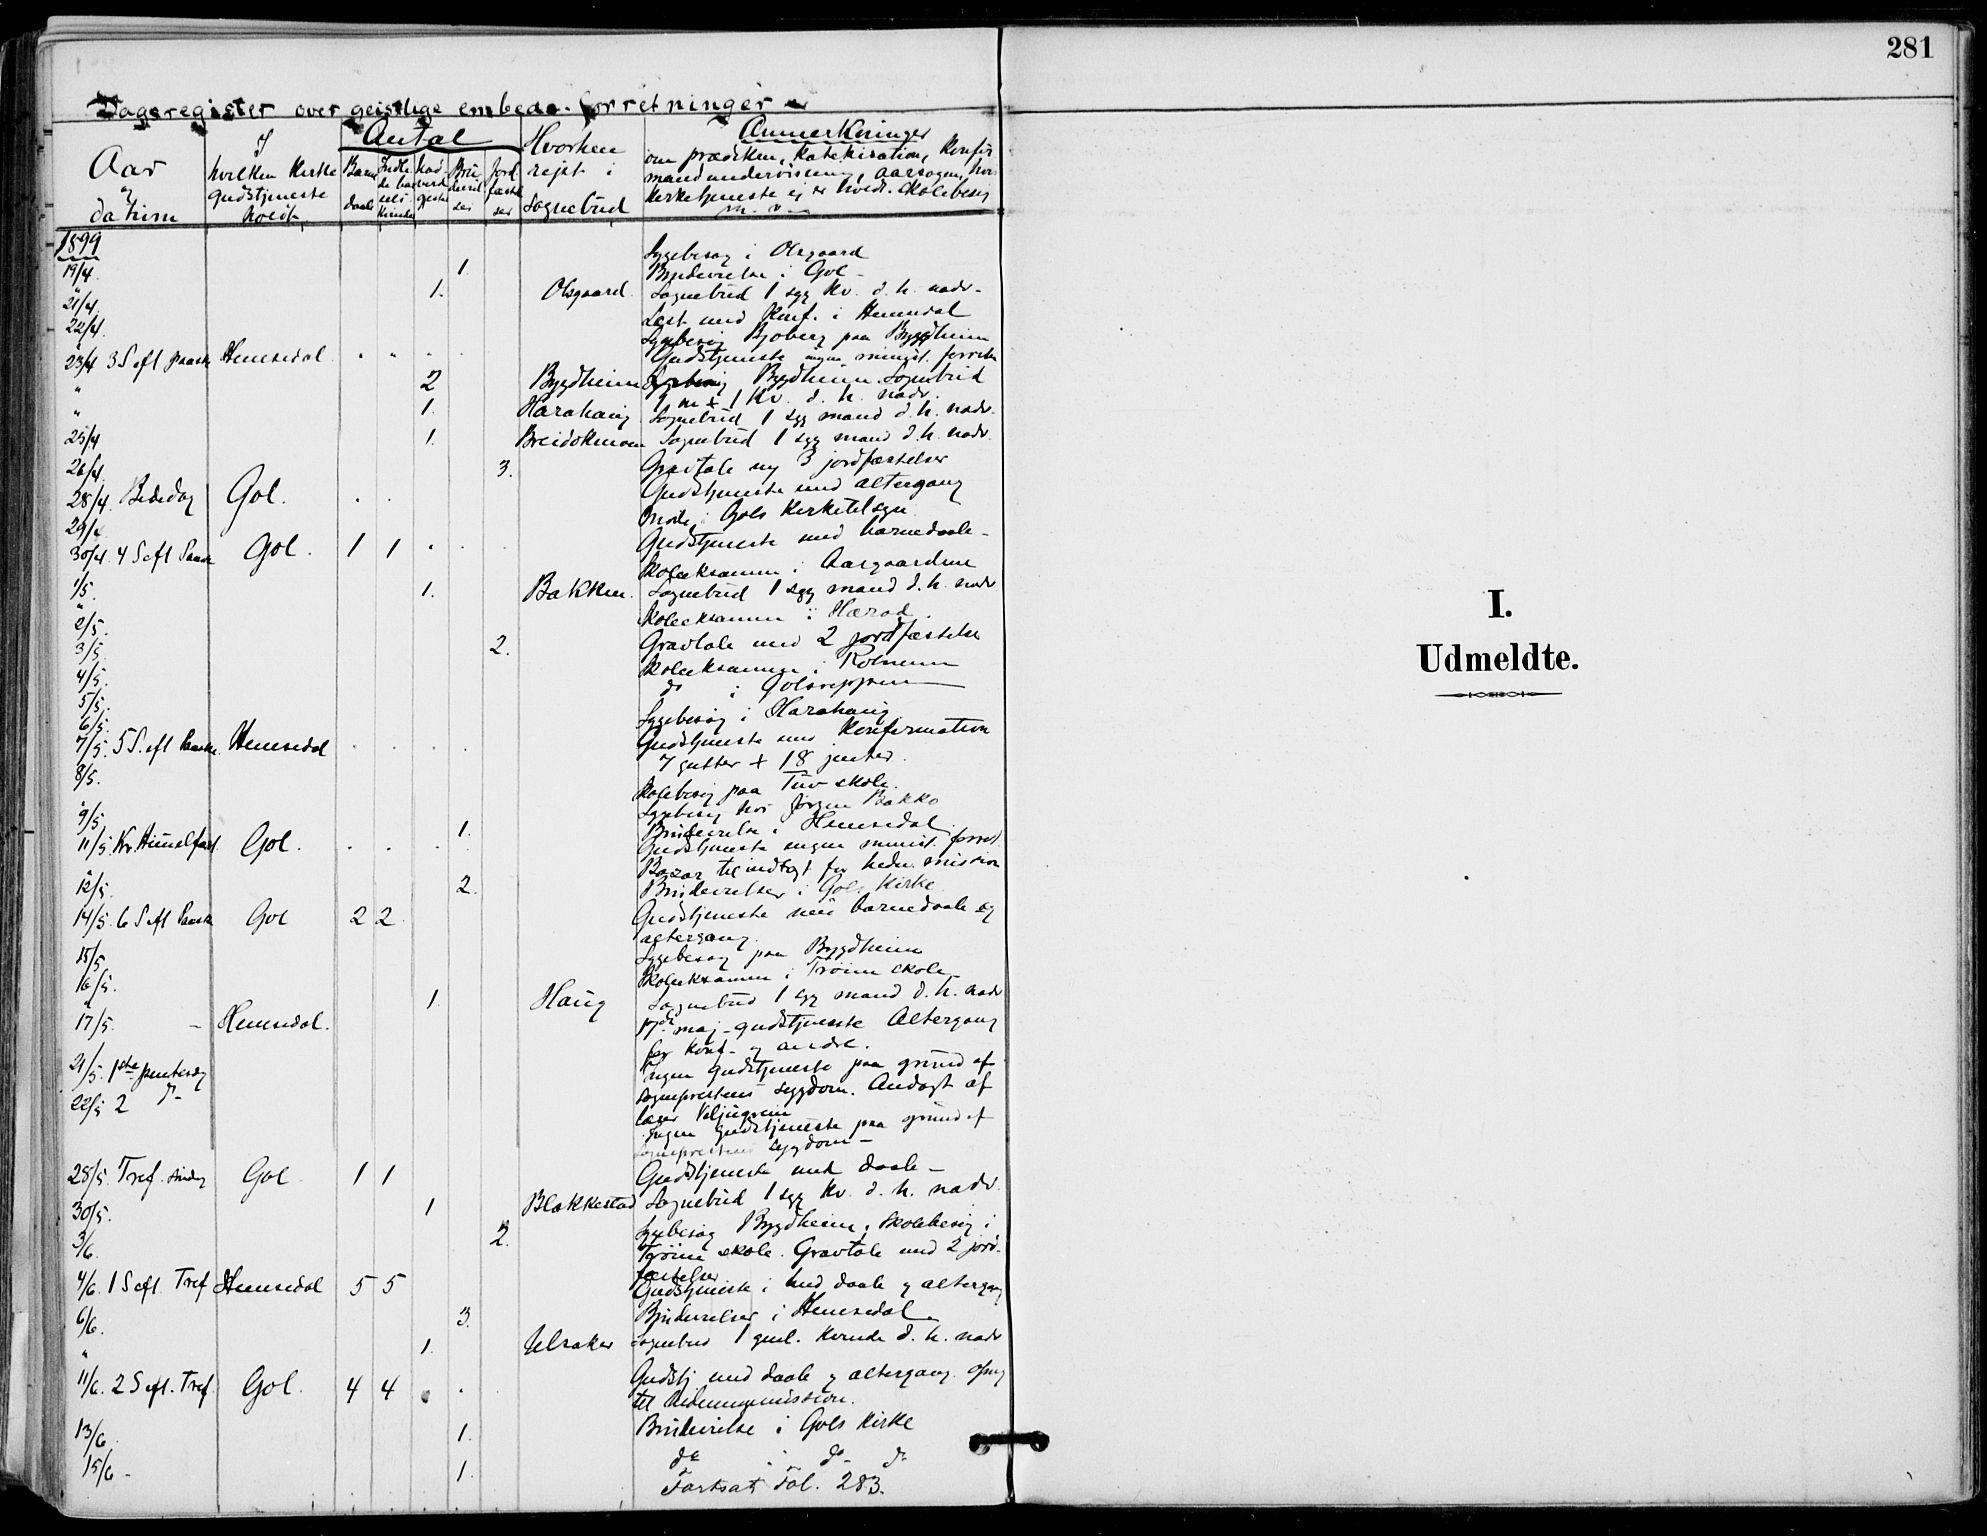 281
Dagsregister over geistlige embeds-forretninger
Aar & datum
I hvilken Kirke gudstjeneste holdt
Antal
Barne daab
Indle de bar sels Kvinder
nad verds gjester
Bru devi el ser
Jord fæstel ser
Hvorhen rejst i sognebud
Anmerkninger
om prædiken, katekisation, konfir
mandundervisning, aarsagen, hvis
Kirketjeneste ej er holdt. Skolebesøg
m. v.
1899
19/4. Sygebesøg i Olsgaard
" 1. Brudevielse i Gol -
21/4. 1. Olsgaard. Sognebud 1 syg Kv. d. h. nadv-
22/4. Læst med Konf. i Hemsedal
" Sygebesøg Bjøberg paa Bygdheim
23/4 3 S eft paaske Hemsedal Gudstjeneste ingen minist. forretn
" 2 Bygdheim Sygebesøg Bygdheim. Sognebud
1 m + 1 Kv. d. h. nadv.
" 1. Harahaug Sognebud 1 syg mand d. h. nadv.
25/4 1. Sognebud 1 syg mand d. h. nadv.
26/4. 3. Gravtale og 3 jordfæstelser
28/4. Bededag Gol. Gudstjeneste med altergang
29/4 Møde i Gols Kirketilsyn
30/4. 4 S eft Paaske Gol. 1 1 Gudstjeneste med barnedaab-
1/5. Skoleeksamen i Aasgaardene
" 1. Bakken. Sognebud 1 syg mand d. h. nadv
2/5. Skoleeksamen i Herad.
3/5 2. Gravtale med 2 jordfæstelse
4/5. Skoleeksamen i
5/5. do i Golreppen
6/5. Sygebesøg i Harahaug
7/5. 5 S. eft Paaske. Hemsedal Gudstjeneste med Konfirmation
7 gutter + 18 jenter.
8/5. Skolebesøg paa Tuv skole.
" Sygebesøg hos Jørgen Bakko
9/5 1. Brudevielse i Hemsedal
11/5. Kr. Himmelfart Gol. Gudstjeneste ingen minist. forret
" Bazar til indtægt for hedn. mission
12/5. 2. Brudevielser i Gols Kirke
14/5 6 S eft Paaske Gol 2 2. Gudstjeneste med barnedaab og
altergang.
15/5 Sygebesøg paa Bygdheim
16/5. Skoleeksamen i Trøim skole
" 1. Haug Sognebud 1 syg mand d. h. nadv
17/5. - Hemsedal. 17de maj-gudstjeneste Altergang
for Konf- og andre.
21/5. 1ste pintsedag Ingen gudstjeneste paa grund af
sogneprestens sygdom. Andagt af
lærer
22/5 2 do- Ingen gudstjeneste paa grund af
sogneprestens sygdom-
28/5. Tref. søndag Gol. 1 1 Gudstjeneste med daab-
30/5. 1 Blakkestad Sognebud 1 syg Kv. d. h. nadv.
3/6. 2. Sygebesøg Bygdheim, Skolebesøg i
Trøim skole. Gravtale med 2 jord-
fæstelser
4/6. 1 S eft. Tref Hemsedal 5 5 Gudstjeneste i med daab & altergang
6/6. 3. Brudevielser i Hemsedal.
" 1. Ulsaker Sognebud 1 gml. Kvinde d. h. nadv
11/6. 2 S eft. Tref. Gol. 4 4 Gudstj med daab & altergang. ofring
til Hedningemission.
13/6 1. Brudevielse i Gols Kirke
15/6- 1. do do do
Fortsat Fol. 283.
I.
Udmeldte.